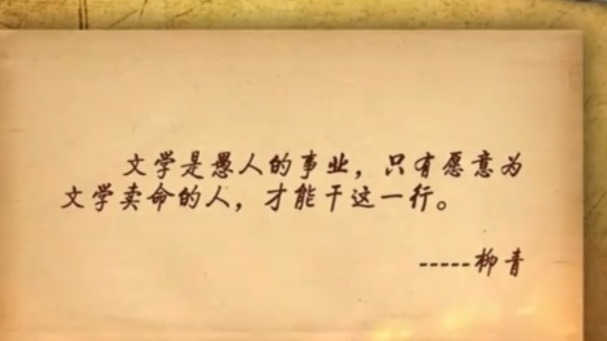 文学是愚人的事业，只有愿意为
文学卖命的人，才能干这一行。
-----柳青